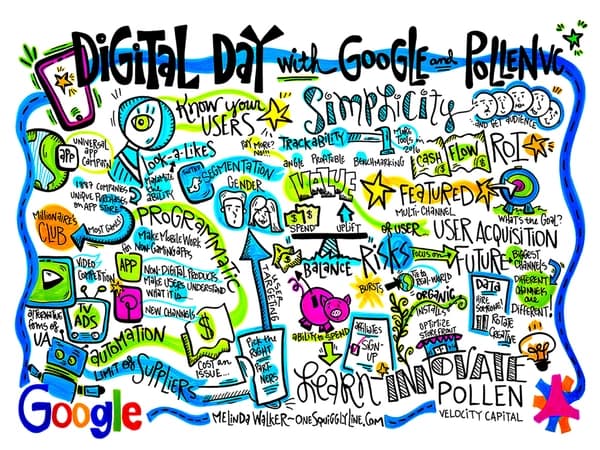 DIGITAL DAY with GOOGLE and POLLEN VC
KNOW YOUR
USERS
PAY MORE?
SIMPLICITY
AND GET AUDIENCE
UNIVERSAL
APP
CAMPAIGN
APP
LOOK-A-LIKES
SEGMENTATION
GENDER
TRACKABILITY
MORE
TOOLS IN
2016
BENCHMARKING
PROFITABLE
VALUE
CASH FLOW
ROI
1147 COMPANIES
UNIQUE PURCHASES
ON APP STORE
MILLIONAIRE'S
CLUB
MOST GAMES!
PROGRAMMATIC
MAKE MOBILE WORK
NON-GAMING APPS
$1
SPEND
UPLIFT
BALANCE
FEATURED
MULTI-CHANNEL
OF USER
USER ACQUISITION
WHAT'S THE GOAL?
RISKS
FOCUS ON
FUTURE
BIGGEST
CHANNELS
DIFFERENT
CHANNELS
are
DIFFERENT!
VIDEO
COMPETITION
APP
NON-DIGITAL PRODUCTS
MAKE USERS UNDERSTAND
WHAT IT IS
NEW CHANNELS
TV
ADS
ALTERNATIVE
forms of
UA
AUTOMATION
LIMIT OF SUPPLIERS
$
COST AN
ISSUE...
LASER
TARGETING
Pick the
RIGHT
PARTNERS
BURSTS
ABILITY to SPEND
affiliates
SIGN-
UP
REAL-WORLD
ORGANIC
INSTALLS
OPTIMIZE
STORE FRONT
DATA
HIRE
SOMEONE!
ROTATE
CREATIVE
LEARN INNOVATE
Google
MELINDA WALKER~ONESQUIGGLYLINE.COM
POLLEN
VELOCITY CAPITAL